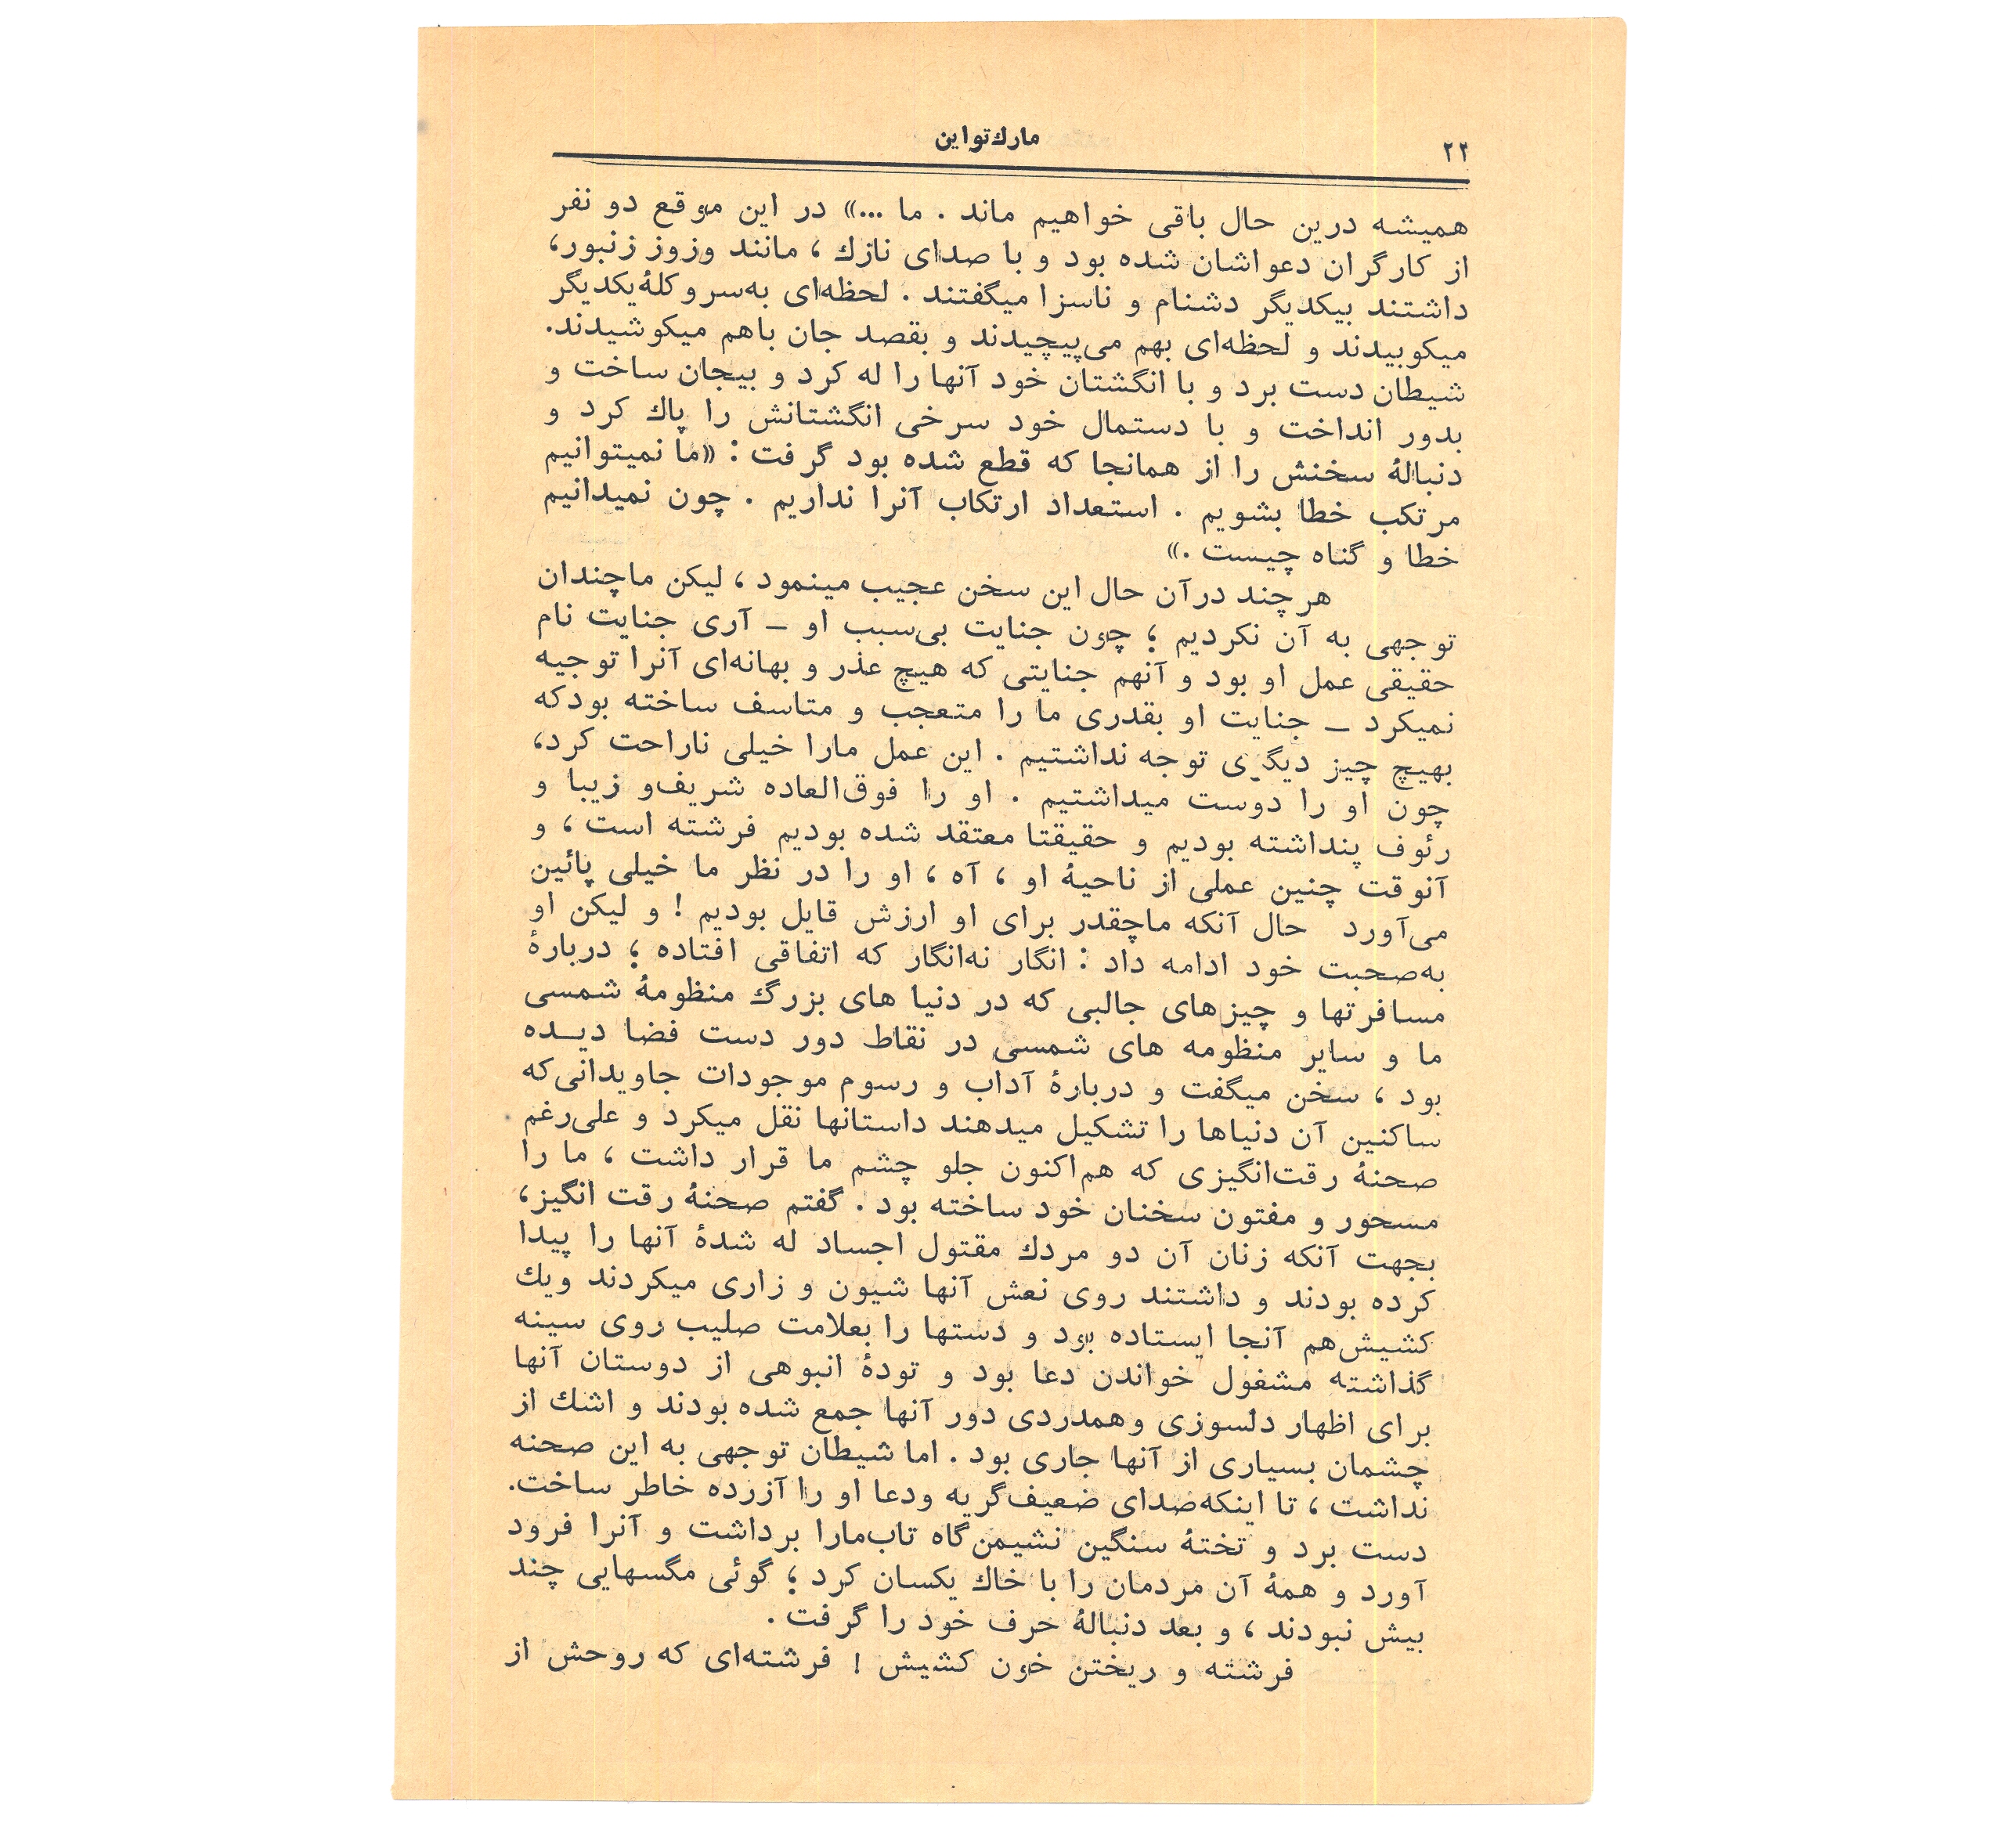 ۲۲
مارك‌تواین
همیشه درین حال باقی خواهیم ماند . ما ...» در این موقع دو نفر
از کارگران دعواشان شده بود و با صدای نازك ، مانند وزوز زنبور،
داشتند بیکدیگر دشنام و ناسزا میگفتند . لحظه‌ای به‌سروکلهٔ‌یکدیگر
میکوبیدند و لحظه‌ای بهم می‌پیچیدند و بقصد جان باهم میکوشیدند.
شیطان دست برد و با انگشتان خود آنها را له کرد و بیجان ساخت و
بدور انداخت و با دستمال خود سرخی انگشتانش را پاك کرد و
دنبالهٔ سخنش را از همانجا که قطع شده بود گرفت : «ما نمیتوانیم
مرتکب خطا بشویم . استعداد ارتکاب آنرا نداریم . چون نمیدانیم
خطا و گناه چیست .»
هرچند درآن حال این سخن عجیب مینمود ، لیکن ماچندان
توجهی به آن نکردیم ؛ چون جنایت بی‌سبب او ــ آری جنایت نام
حقیقی عمل او بود و آنهم جنایتی که هیچ عذر و بهانه‌ای آنرا توجیه
نمیکرد ــ جنایت او بقدری ما را متعجب و متاسف ساخته بودکه
بهیچ چیز دیگری توجه نداشتیم . این عمل مارا خیلی ناراحت کرد،
چون او را دوست میداشتیم . او را فوق‌العاده شریف‌و زیبا و
رئوف پنداشته بودیم و حقیقتا معتقد شده بودیم فرشته است ، و
آنوقت چنین عملی از ناحیهٔ او ، آه ، او را در نظر ما خیلی پائین
می‌آورد حال آنکه ماچقدر برای او ارزش قایل بودیم ! و لیکن او
به‌صحبت خود ادامه داد : انگار نه‌انگار که اتفاقی افتاده ؛ دربارهٔ
مسافرتها و چیزهای جالبی که در دنیا های بزرگ منظومهٔ شمسی
ما و سایر منظومه های شمسی در نقاط دور دست فضا دیـده
بود ، سخن میگفت و دربارهٔ آداب و رسوم موجودات جاویدانی‌که
ساکنین آن دنیاها را تشکیل میدهند داستانها نقل میکرد و علی‌رغم
صحنهٔ رقت‌انگیزی که هم‌اکنون جلو چشم ما قرار داشت ، ما را
مسحور و مفتون سخنان خود ساخته بود . گفتم صحنهٔ رقت انگیز،
بجهت آنکه زنان آن دو مردك مقتول اجساد له شدهٔ آنها را پیدا
کرده بودند و داشتند روی نعش آنها شیون و زاری میکردند ویك
کشیش‌هم آنجا ایستاده بود و دستها را بعلامت صلیب روی سینه
گذاشته مشغول خواندن دعا بود و تودهٔ انبوهی از دوستان آنها
برای اظهار دلسوزی وهمدردی دور آنها جمع شده بودند و اشك از
چشمان بسیاری از آنها جاری بود . اما شیطان توجهی به این صحنه
نداشت ، تا اینکه‌صدای ضعیف‌گریه ودعا او را آزرده خاطر ساخت.
دست برد و تختهٔ سنگین نشیمن‌گاه تاب‌مارا برداشت و آنرا فرود
آورد و همهٔ آن مردمان را با خاك یکسان کرد ؛ گوئی مگسهایی چند
بیش نبودند ، و بعد دنبالهٔ حرف خود را گرفت .
فرشته و ریختن خون کشیش ! فرشته‌ای که روحش از